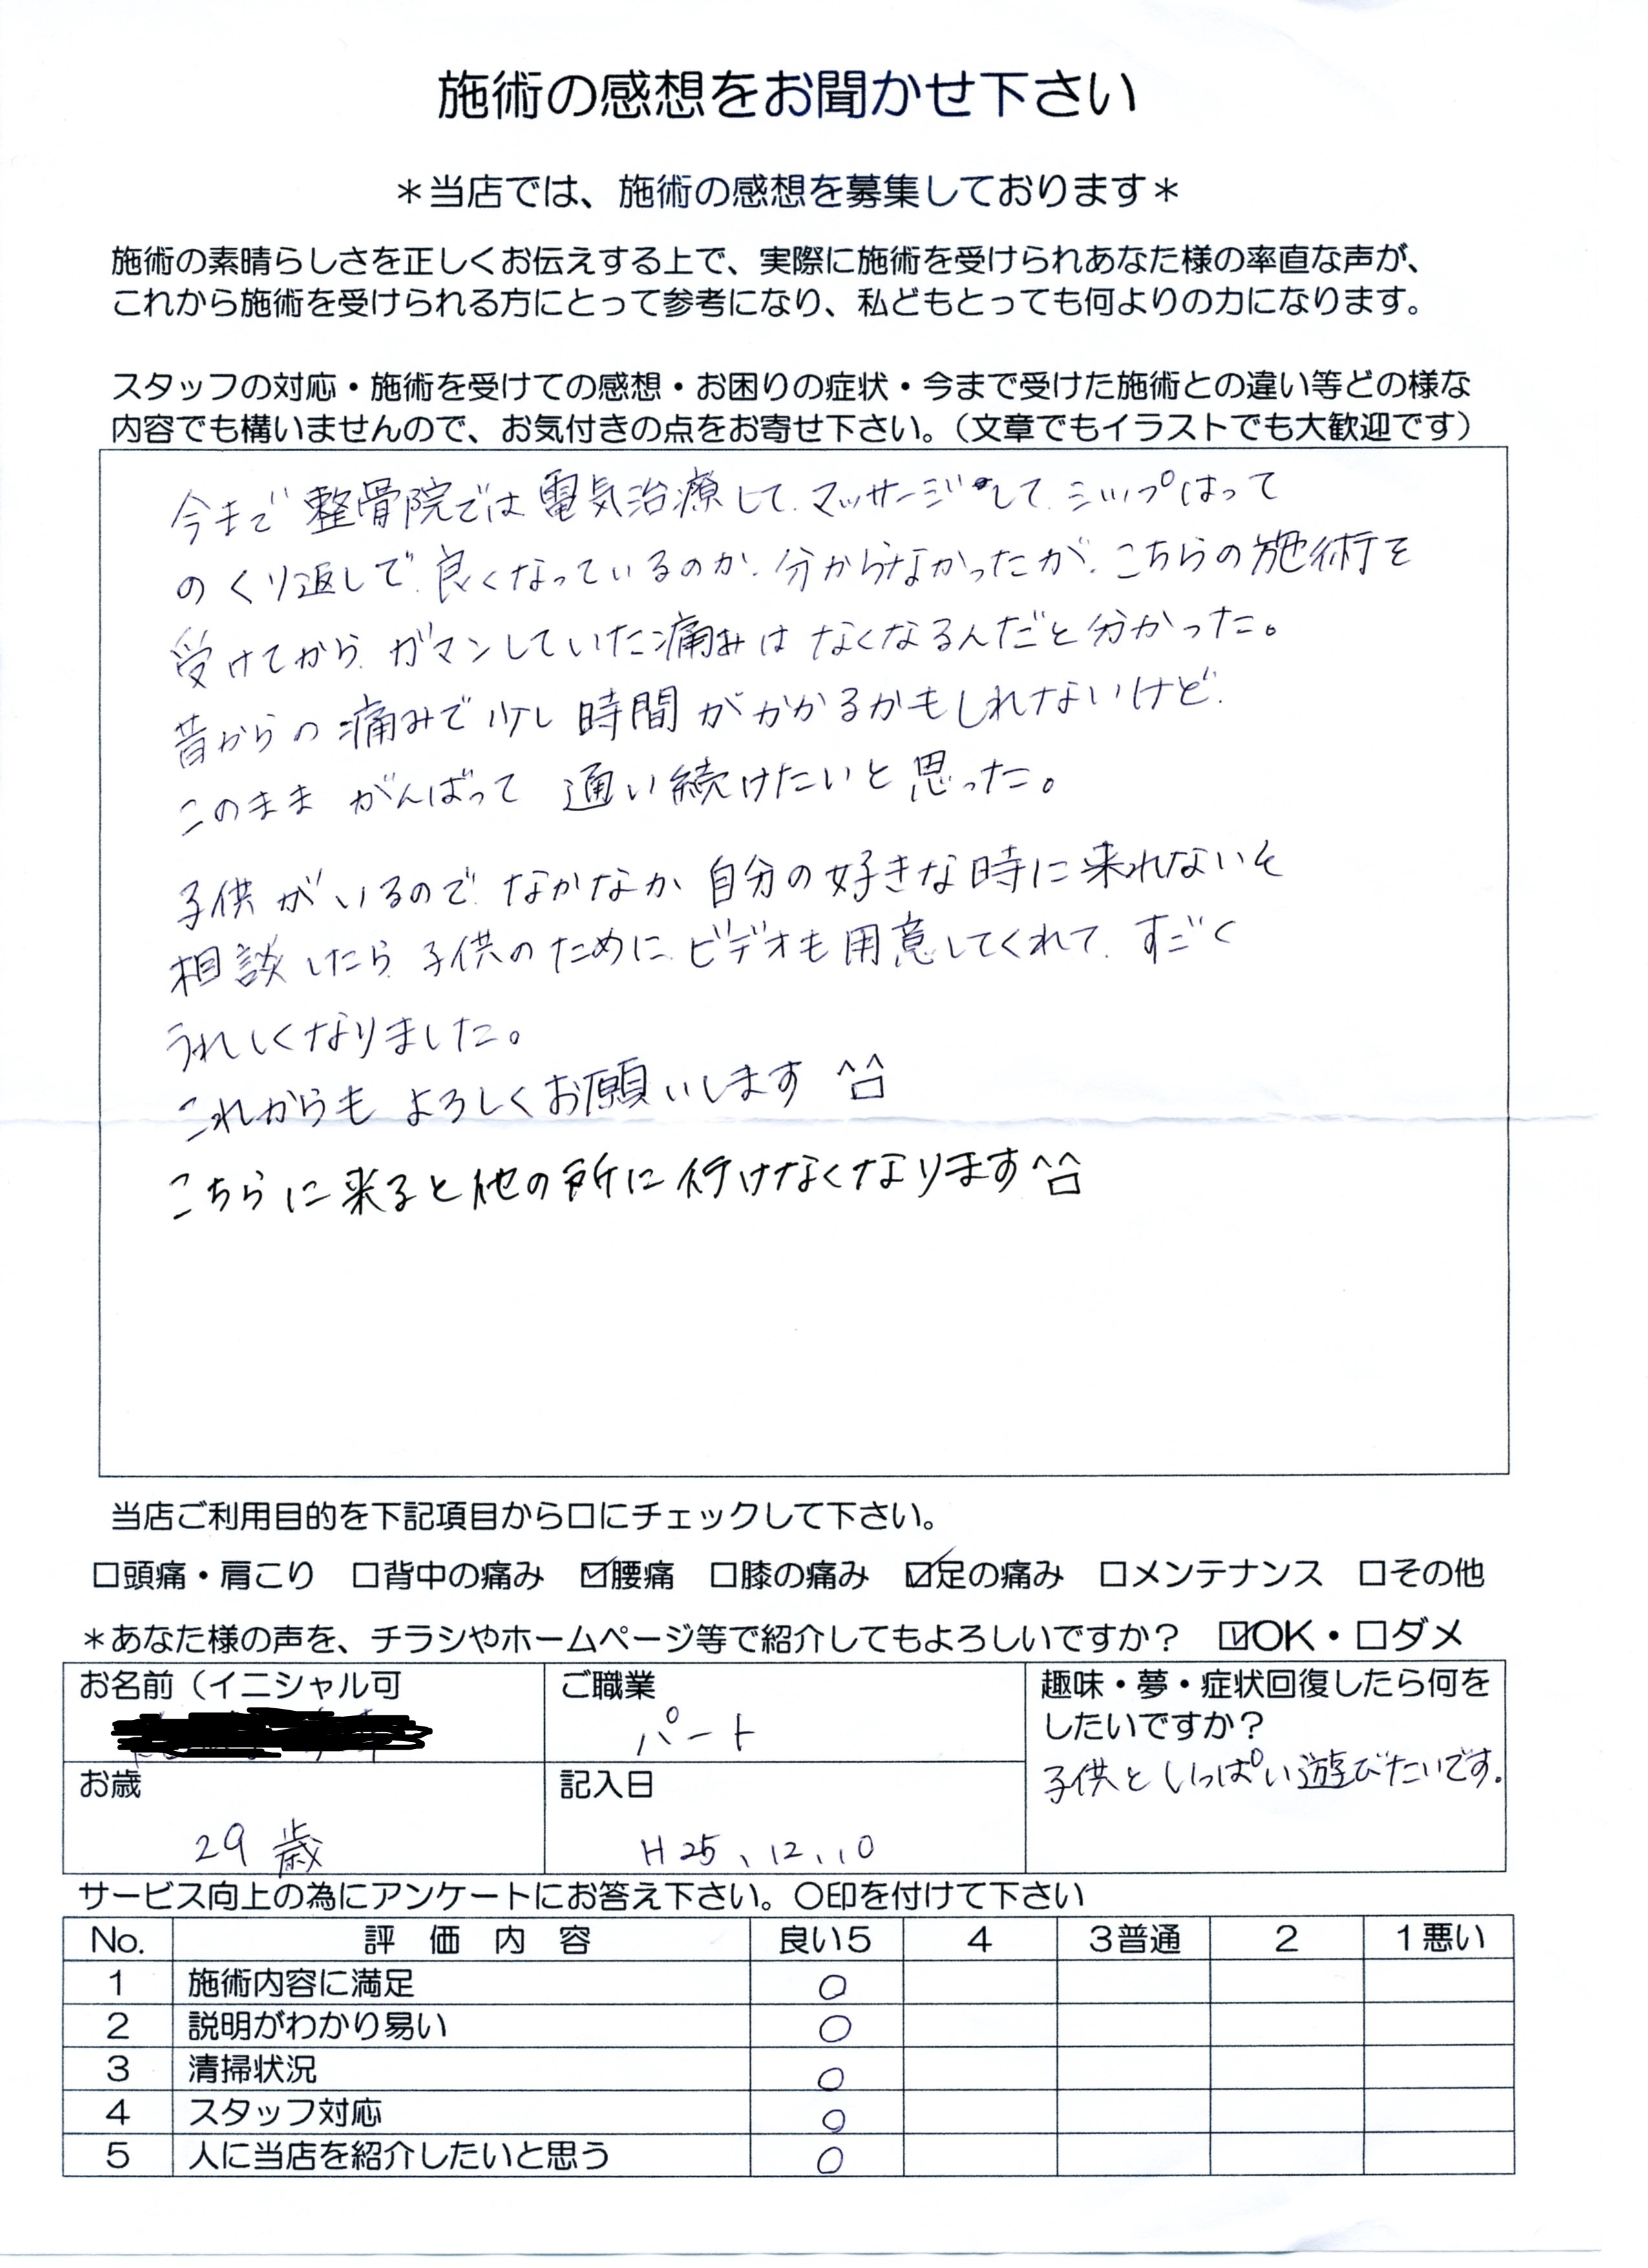 施術の感想をお聞かせ下さい
＊当店では、施術の感想を募集しております＊
施術の素晴らしさを正しくお伝えする上で、実際に施術を受けられあなた様の率直な声が、
これから施術を受けられる方にとって参考になり、私どもとっても何よりの力になります。
スタッフの対応・施術を受けての感想・お困りの症状・今まで受けた施術との違い等どの様な
内容でも構いませんので、お気付きの点をお寄せ下さい。（文章でもイラストでも大歓迎です）
今まで整骨院では電気治療して、マッサージして、シップはって
のくり返しで、良くなっているのか、分からなかったが、こちらの施術を
受けてから、ガマンしていた痛みはなくなるんだと分かった。
昔からの痛みで少し時間がかかるかもしれないけど、
このままがんばって通い続けたいと思った。
子供がいるので、なかなか自分の好きな時に来れないを
相談したら、子供のために、ビデオも用意してくれて、すごく
うれしくなりました。
これからもよろしくお願いします ^ロ^
こちらに来ると他の所に行けなくなります ^ロ^
当店ご利用目的を下記項目から口にチェックして下さい。
□頭痛・肩こり ☑背中の痛み ☑腰痛 □膝の痛み ☑足の痛み □メンテナンス □その他
＊あなた様の声を、チラシやホームページ等で紹介してもよろしいですか？ ☑OK・□ダメ
お名前（イニシャル可
ご職業
パート
趣味・夢・症状回復したら何を
したいですか？
子供といっぱい遊びたいです。
お歳
29歳
記入日
H25、12、10
サービス向上の為にアンケートにお答え下さい。〇印を付けて下さい
No. 評価内容 良い5 4 3普通 2 1悪い
1 施術内容に満足 〇
2 説明がわかり易い 〇
3 清掃状況 〇
4 スタッフ対応 〇
5 人に当店を紹介したいと思う 〇